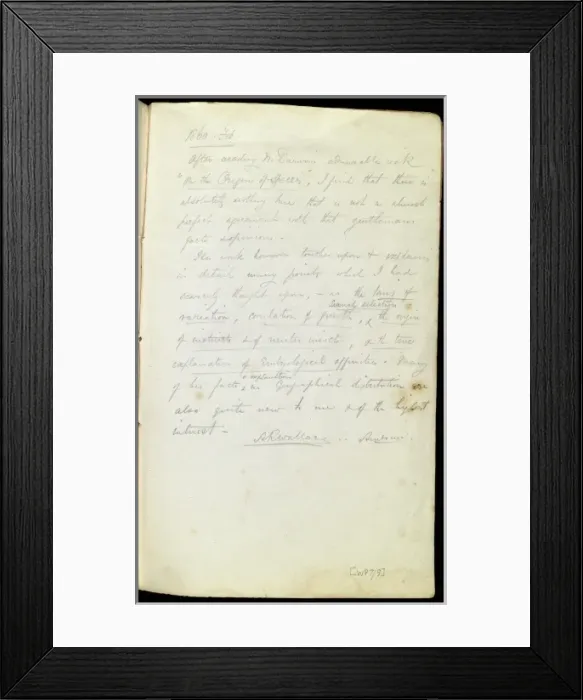 1860. Feb.
After reading Mr Darwin's admirable work
"On the Origin of Species", I find that there is
absolutely nothing here that is not in almost
perfect agreement with that gentlemans
facts & opinions.
His work however touches upon & explains
in detail many points which I had
scarcely thought upon, - as the laws of
variation, correlation of growth, sexual selection, & the origin
of instincts & of neuter insects, & the true
explanation of Embryological affinities. Many
of his facts & explanations in Geographical distribution are
also quite new to me & of the highest
interest -
ARWallace .. Amboina.
[WP7/8]